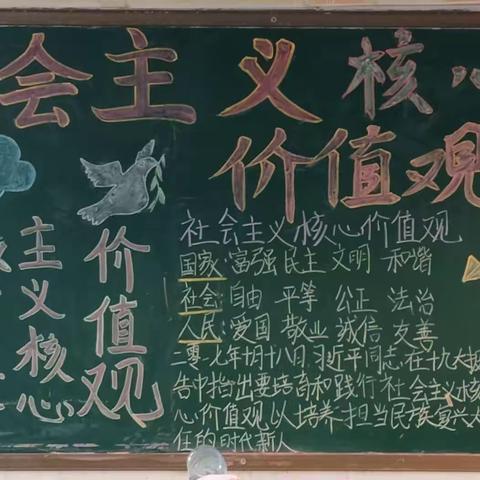 会主义核心
价值观
社会主义核心价值观
国家:富强 民主 文明 和谐
社会:自由 平等 公正 法治
人民:爱国 敬业 诚信 友善
二零一七年十月十八日,习近平同志在十九大报
告中指出要培育和践行社会主义核
心价值观以培养担当民族复兴大
任的时代新人
主义核心
价值观